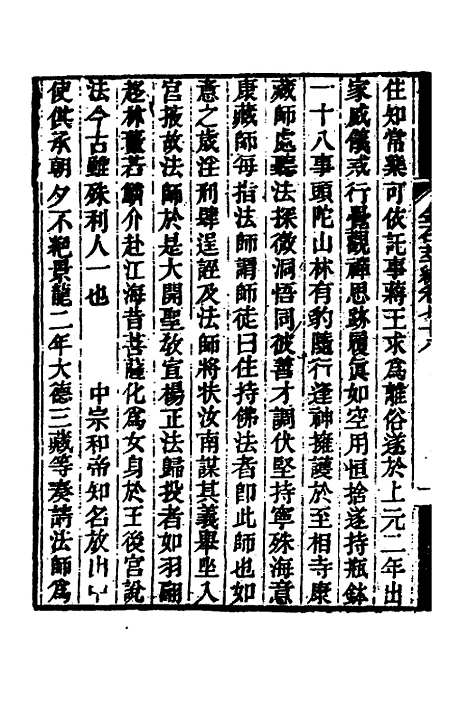 住知常樂可依託事蔣王求爲離俗遂於上元二年出
家威儀戒行覺觀禪思跡履真如空用恒捨遂持瓶鉢
一十八事頭陀山林有豹隨行逢神擁護於至相寺康
藏師處聽法探微洞悟同彼善才調伏堅持寧殊海意
康藏師每指法師謂師徒曰住持佛法者卽此師也如
意之歲淫刑肆逞誣及法師將狀汝南謀其義舉坐入
宮掖故法師於是大開聖敎宣揚正法歸投者如羽翮
趍林藪若鱗介赴江海昔菩薩化爲女身於王後宮說
法今古雖殊利人一也 中宗和帝知名放出中
使供承朝夕不絕景龍二年大德三藏等奏請法師爲